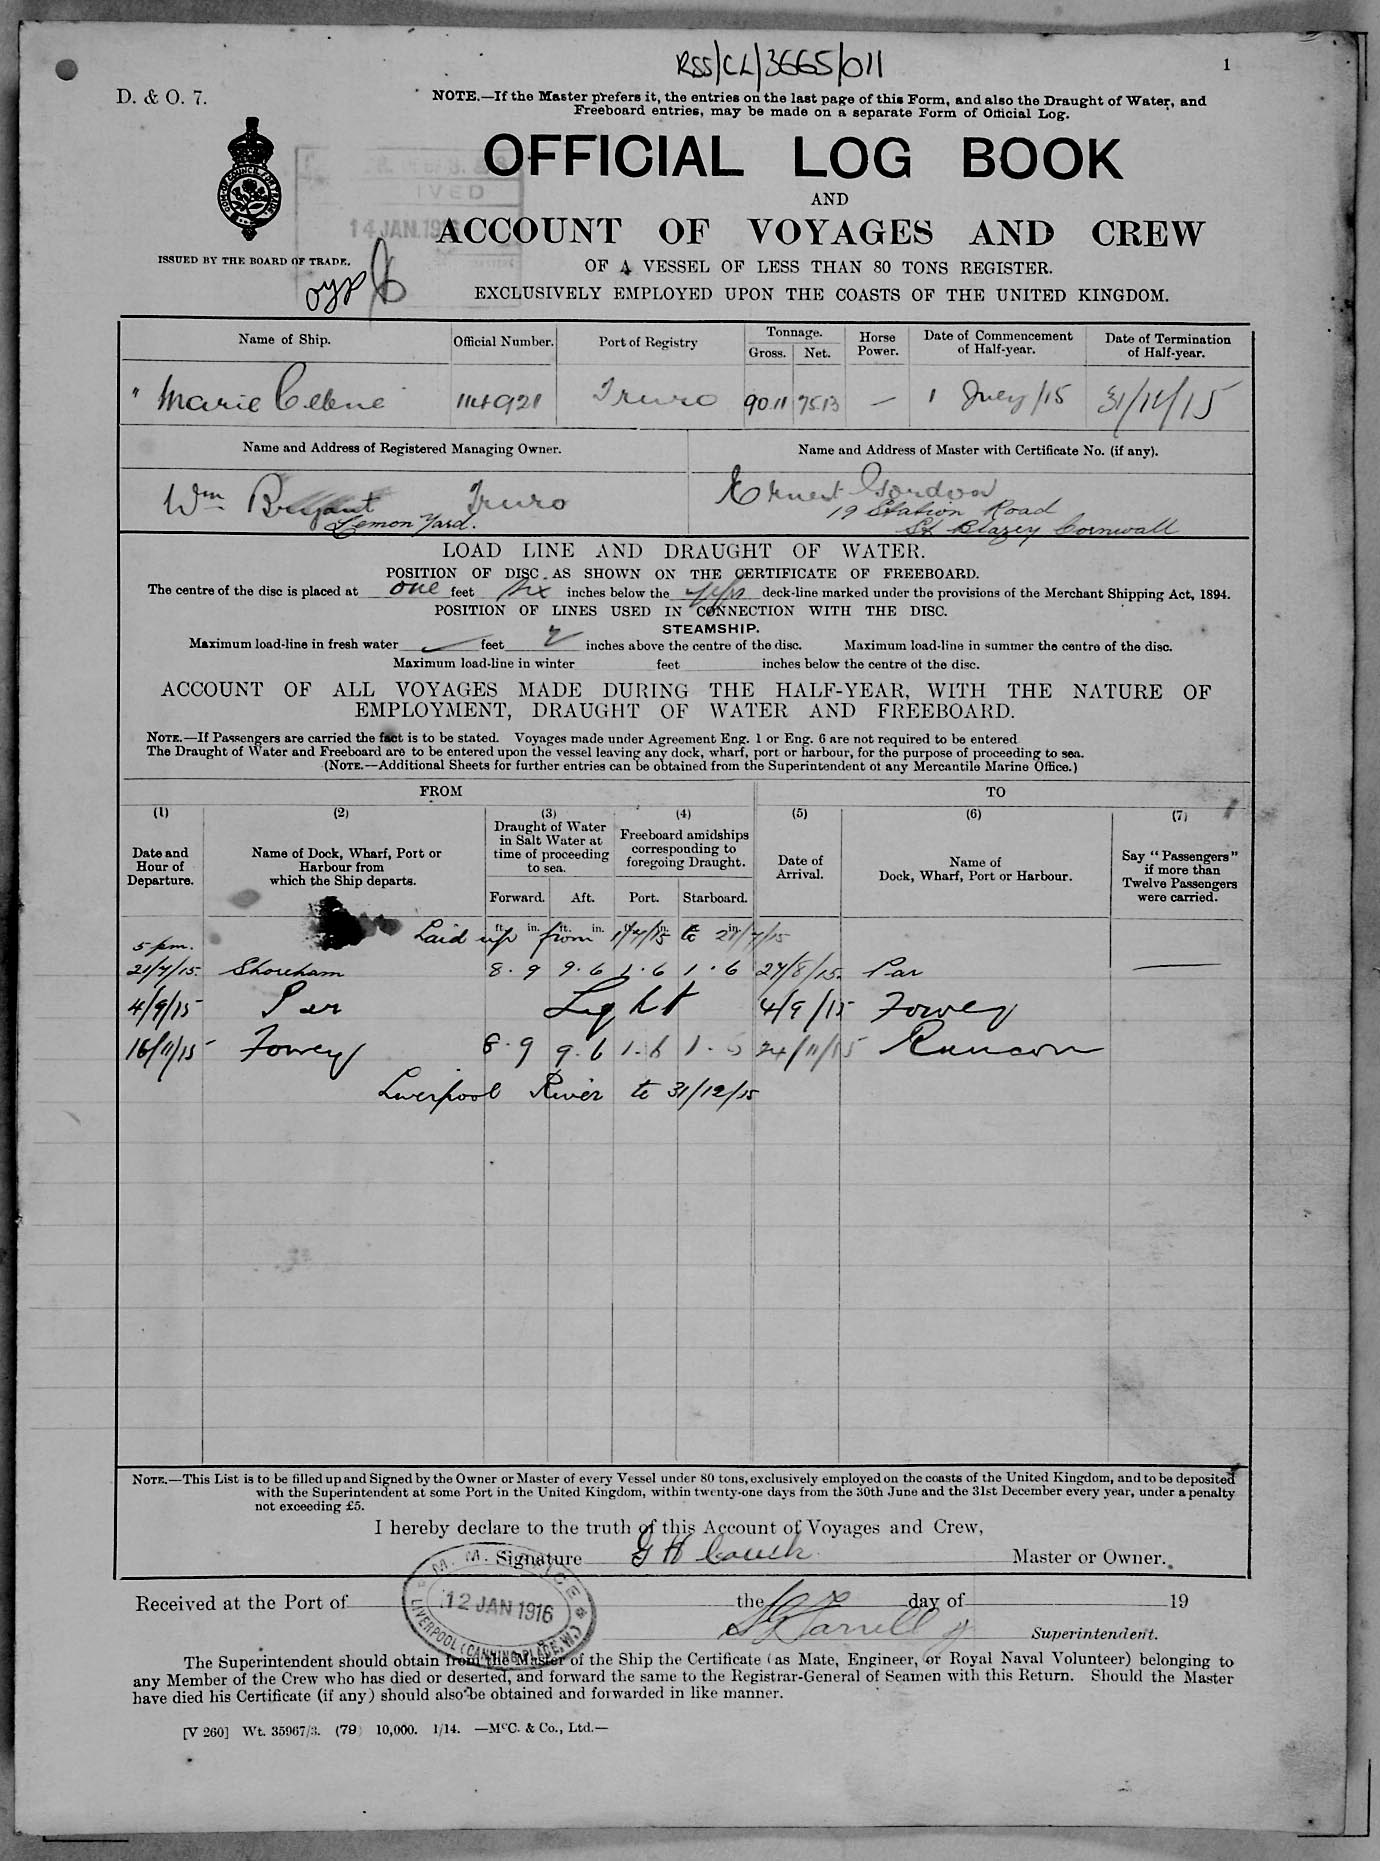 RSS/CL/3665/011
1
D. & O. 7.
NOTE.—If the Master prefers it, the entries on the last page of this Form, and also the Draught of Water, and
Freeboard entries, may be made on a separate Form of Official Log.
OFFICIAL LOG BOOK
AND
IVED
14 JAN. 1916
ACCOUNT OF VOYAGES AND CREW
ISSUED BY THE BOARD OF TRADE.
OF A VESSEL OF LESS THAN 80 TONS REGISTER.
EXCLUSIVELY EMPLOYED UPON THE COASTS OF THE UNITED KINGDOM.
Name of Ship. Official Number. Port of Registry Tonnage. Horse Power. Date of Commencement of Half-year. Date of Termination of Half-year.
Gross. Net.
" Marie Celine Truro 90.11 75.13 — 1 July/15 31/12/15
Name and Address of Registered Managing Owner. Name and Address of Master with Certificate No. (if any).
Wm Bryant Truro Ernest Gordon
Lemon Yard. 19 Station Road
St Blazey Cornwall
LOAD LINE AND DRAUGHT OF WATER.
POSITION OF DISC AS SHOWN ON THE CERTIFICATE OF FREEBOARD.
The centre of the disc is placed at one feet six inches below the deck-line marked under the provisions of the Merchant Shipping Act, 1894.
POSITION OF LINES USED IN CONNECTION WITH THE DISC.
STEAMSHIP.
Maximum load-line in fresh water feet inches above the centre of the disc. Maximum load-line in summer the centre of the disc.
Maximum load-line in winter feet inches below the centre of the disc.
ACCOUNT OF ALL VOYAGES MADE DURING THE HALF-YEAR, WITH THE NATURE OF
EMPLOYMENT, DRAUGHT OF WATER AND FREEBOARD.
NOTE.—If Passengers are carried the fact is to be stated. Voyages made under Agreement Eng. 1 or Eng. 6 are not required to be entered
The Draught of Water and Freeboard are to be entered upon the vessel leaving any dock, wharf, port or harbour, for the purpose of proceeding to sea.
(NOTE.—Additional Sheets for further entries can be obtained from the Superintendent of any Mercantile Marine Office.)
FROM TO
(1) (2) (3) (4) (5) (6) (7)
Date and Hour of Departure. Name of Dock, Wharf, Port or Harbour from which the Ship departs. Draught of Water in Salt Water at time of proceeding to sea. Freeboard amidships corresponding to foregoing Draught. Date of Arrival. Name of Dock, Wharf, Port or Harbour. Say "Passengers" if more than Twelve Passengers were carried.
Forward. Aft. Port. Starboard.
ft. in. ft. in. in. in.
Laid up from 1/7/15 to 21/7/15
5 pm.
21/7/15 Shoreham 8.9 9.6 1.6 1.6 27/8/15 Par —
4/9/15 Par Light 4/9/15 Fowey
16/11/15 Fowey 8.9 9.6 1.6 1. 24/11/15 Runcorn
Liverpool River to 31/12/15
NOTE.—This List is to be filled up and Signed by the Owner or Master of every Vessel under 80 tons, exclusively employed on the coasts of the United Kingdom, and to be deposited
with the Superintendent at some Port in the United Kingdom, within twenty-one days from the 30th June and the 31st December every year, under a penalty
not exceeding £5.
I hereby declare to the truth of this Account of Voyages and Crew,
Signature G H Couch Master or Owner.
M. M. OFFICE
12 JAN 1916
LIVERPOOL (CANNING PLACE, W.)
Received at the Port of the day of 19
Farrell Superintendent.
The Superintendent should obtain from the Master of the Ship the Certificate (as Mate, Engineer, or Royal Naval Volunteer) belonging to
any Member of the Crew who has died or deserted, and forward the same to the Registrar-General of Seamen with this Return. Should the Master
have died his Certificate (if any) should also be obtained and forwarded in like manner.
[V 260] Wt. 35967/3. (79) 10,000. 1/14. —McC. & Co., Ltd.—